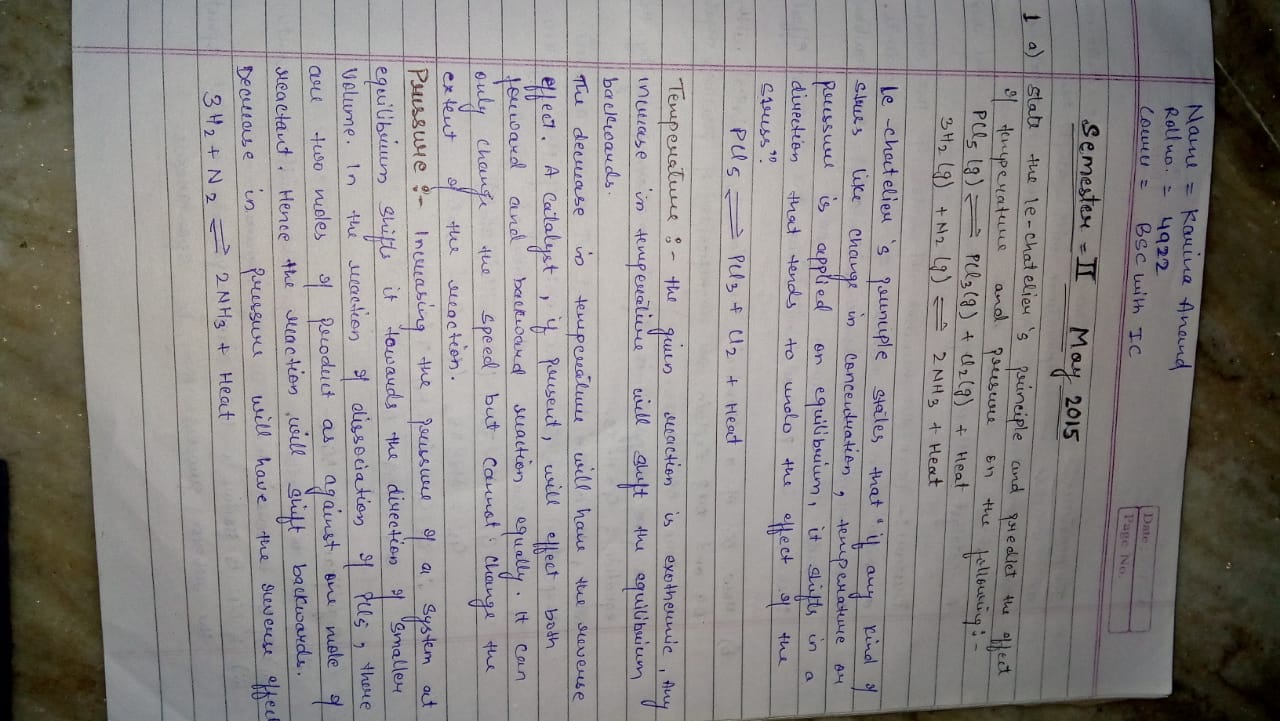 Date:
Page No.
Name = Karina Anand
Rollno. = 4922
Course = BSC with IC
Semester = II May 2015
1 a) State the le-chatelier's principle and predict the effect
of temperature and pressure on the following:-
PCl5 (g) ⇌ PCl3(g) + Cl2(g) + Heat
3H2 (g) + N2 (g) ⇌ 2NH3 + Heat
le-chatelier's principle states that "if any kind of
stress like change in concentration, temperature or
pressure is applied on equilibrium, it shifts in a
direction that tends to undo the effect of the
stress."
PCl5 ⇌ PCl3 + Cl2 + Heat
Temperature :- the given reaction is exothermic, Any
increase in temperature will shift the equilibrium
backwards.
The decrease in temperature will have the reverse
effect. A catalyst, if present, will effect both
forward and backward reaction equally. It can
only change the speed but cannot change the
extent of the reaction.
Pressure :- Increasing the pressure of a system at
equilibrium shifts it towards the direction of smaller
volume. In the reaction of dissociation of PCl5, there
are two moles of product as against one mole of
reactant. Hence the reaction will shift backwards.
Decrease in pressure will have the reverse effect
3H2 + N2 ⇌ 2NH3 + Heat